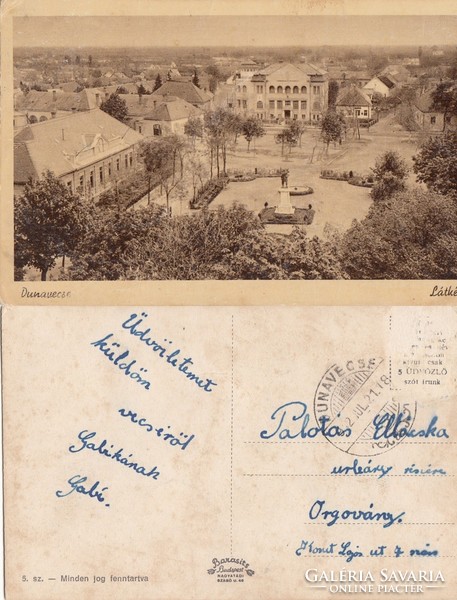 Dunavecse
Látké
Üdvözletemet
küldöm
vecséről
Gabikának
Gabi.
5 ÜDVÖZLŐ
szót írunk
DUNAVECSE
Palotás
urleány részére
Orgovány.
út 7 szám
5. sz. — Minden jog fenntartva
Barasits
Budapest
NAGYATÁDI
GALERIA SAVARIA
ONLINE PIACTÉR